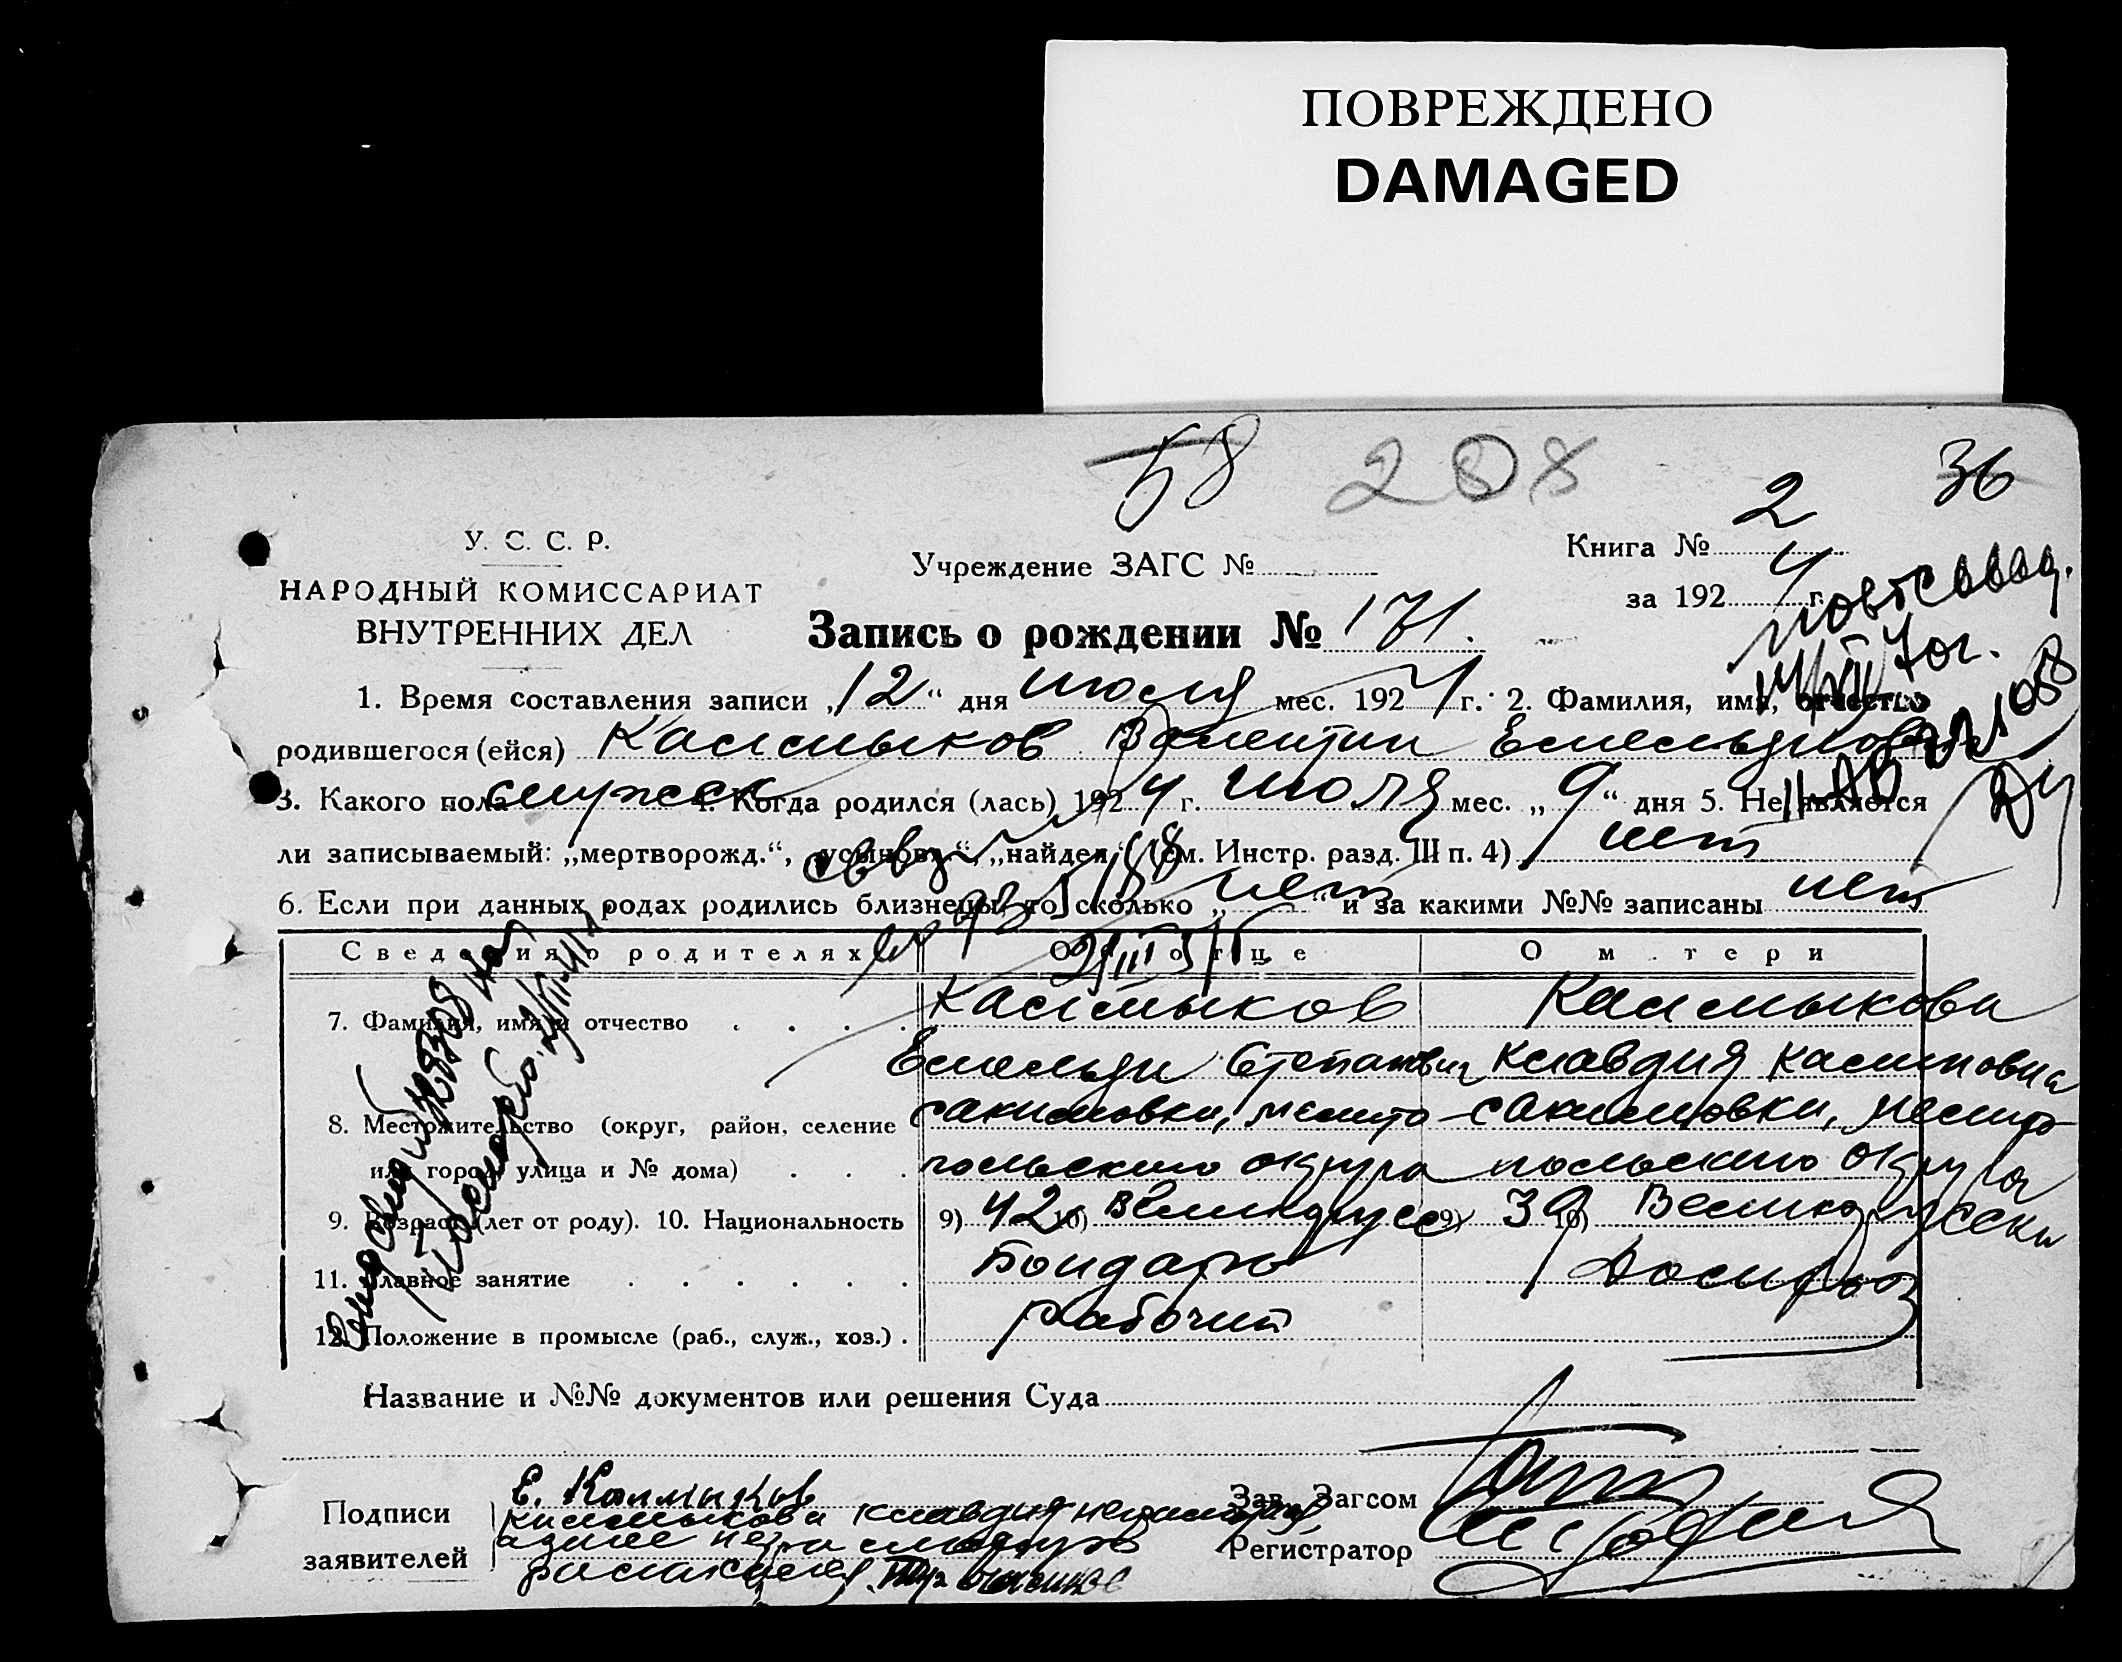 ПОВРЕЖДЕНО
DAMAGED
58 288 36
У. С. С. Р.
НАРОДНЫЙ КОМИССАРИАТ
ВНУТРЕННИХ ДЕЛ
Учреждение ЗАГС №
Книга № 2
за 1924 г.
Запись о рождении № 171.
повт свид.
1. Время составления записи „12“ дня июля мес. 1924 г. 2. Фамилия, имя, отчество
родившегося (ейся) Калмыков Валентин Емельянов
3. Какого пола мужск 4. Когда родился (лась) 1924 г. июля мес. „9“ дня 5. Не является
ли записываемый: „мертворожд.“, „усыновл.“, „найден.“ (см. Инстр. разд. III п. 4) нет
6. Если при данных родах родились близнецы, то сколько „нет“ и за какими №№ записаны нет
Сведения о родителях Об отце О матери
7. Фамилия, имя и отчество Калмыков Калмыкова
Емельян Степанович Клавдия
8. Местожительство (округ, район, селение Акимовка, Мелито- Акимовка, Мелито
или город улица и № дома) польского округа польского округа
9. Возраст (лет от роду). 10. Национальность 9) 42 10) Великорусс 9) 39 10) Великорусска
11. Главное занятие Бондарь Домхоз
12. Положение в промысле (раб., служ., хоз.) Рабочий
Название и №№ документов или решения Суда
Подписи
заявителей
Е. Калмыков
Калмыкова Клавдия неграмотная
Зав. Загсом
Регистратор